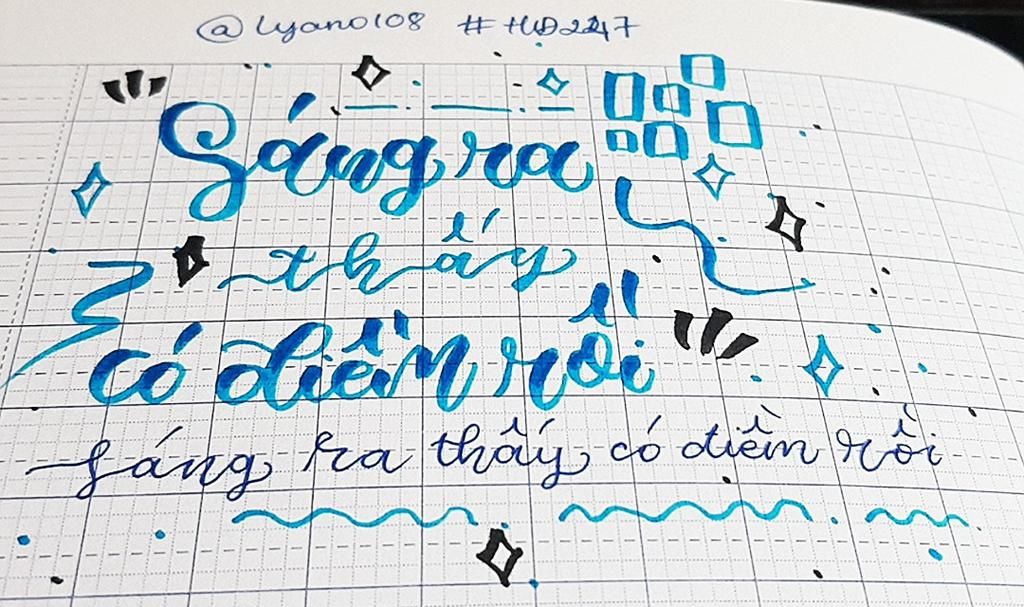 @lyano108 #HD2247
Sáng ra
thấy
có điềm rồi
sáng ra thấy có điềm rồi